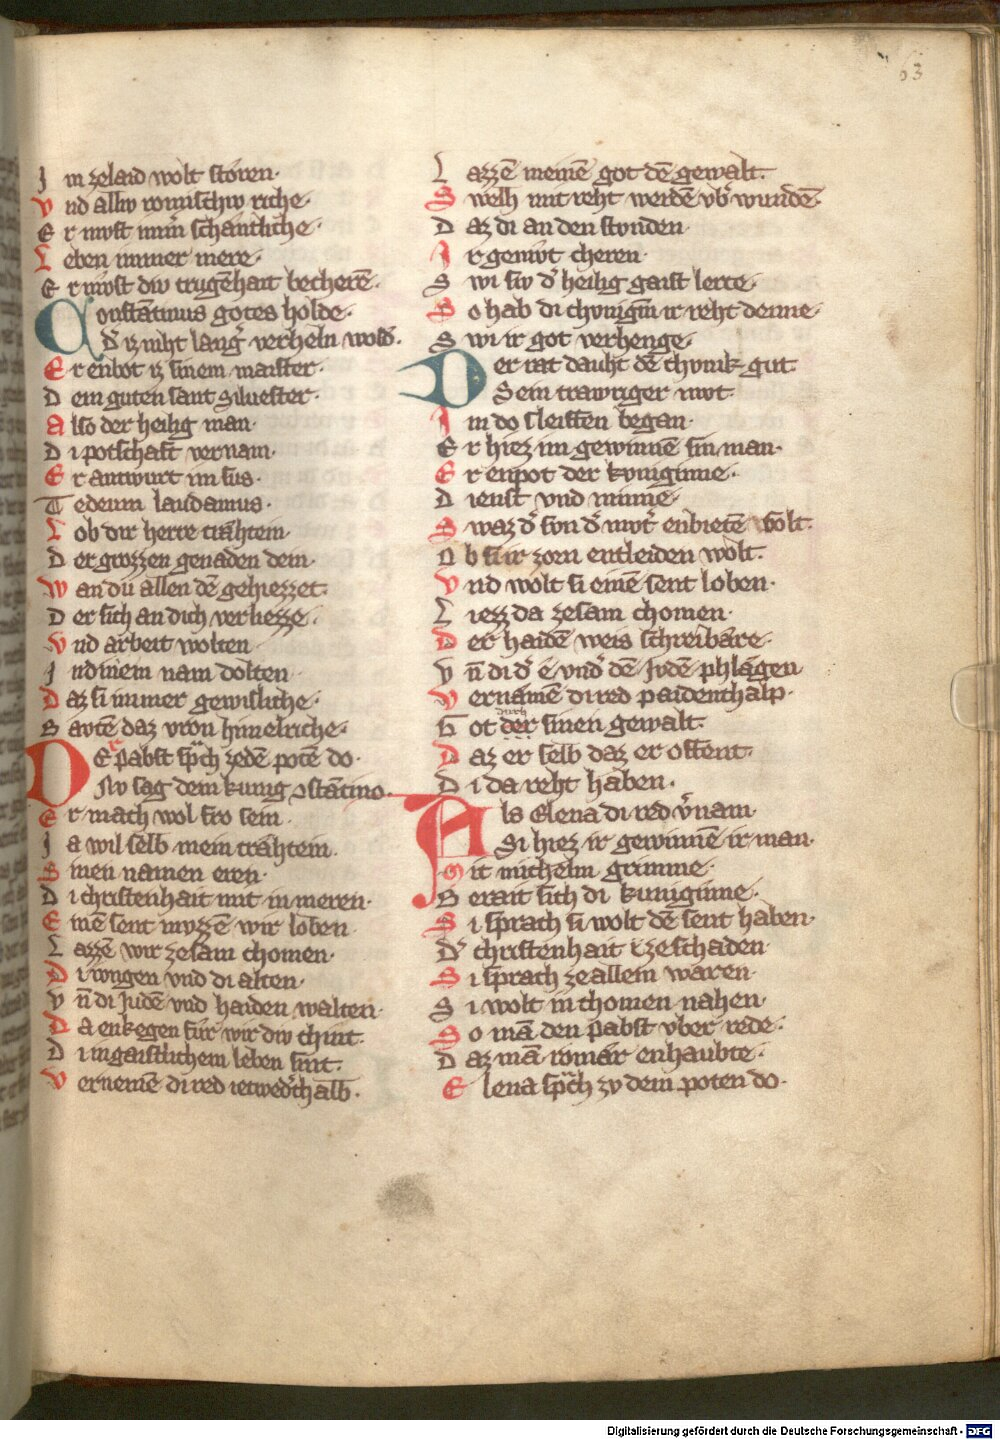 63
J m zelaid wolt stören·
V nd allw romischw riche·
E r must im̄ schantliche·
L eben immer mere·
E r mv̊st diw trugēhait becherē·
Constātinus gotes holde·
d̓ iz niht lang̓ verheln wold̓·
E r enbot iz sinem maister·
D em guten sant Siluester·
A lso der heilig man·
D i potschaft vernam·
E r antwurt im sus·
T edeum laudamus·
L ob dir herre trähtein·
D er grozzen genaden dein·
W an du allen dē gehiezzet·
D er sich an dich verliezze·
V nd arbeit wolten
J n dinem nam dolten·
D az si immer gewisliche·
B awtē daz vron himelriche·
DEr pabst sp̄ch zedē potē do·
Nv sag dem kunig ꝯstātino·
E r mach wol fro sein·
J a wil selb mein trähtein·
S inen namen eren·
D i christenhait mit im meren·
E inē sent mvzzē wir loben·
L azzē wir zesam chomen·
D i iv̊ngen vnd di alten·
V n̄ di Judē vnd haiden walten·
D a enkegen für wir diw chint·
D i in gaistlichem leben sint·
V ernemē di red ietwed̓thalb·
L azzē meinē got dē gewalt·
S welh mit reht werdē vb̓wundē·
D az di an den stvnden·
J r gemv̊t cheren·
S wi siw d̓ heilig gaist lerte·
S o hab di chvnigin ir reht denne·
S wi ir got verhenge·
Der rat dauht dē chvnik gut·
Sein trawriger mvt·
J m do sleiffen began·
E r hiez im gewinnē sin man·
E r enpot der kvniginne·
D ienst vnd minne·
S waz d̓ svn d̓ mvt̓ enbietē solt·
O b si ir zorn entleiden wolt·
V nd wolt si einē sent loben·
L iezz da zesam chomen·
D er haidē weis schreibäre·
V n̄ di d̓ e vnd̓ dē Judē phlägen
V ernamē di red paidenthalp·
durch
G ot der sinen gewalt·
D az er selb daz er offent·
D i da reht haben·
Als Elena di red v̓nam·
Si hiez ir gewinnē ir man·
M it michelm grimme·
B erait sich di kuniginne·
S i sprach si wolt dē sent haben·
D̓ christenhait i zeschaden·
S i sprach zeallem waren·
S i wolt in chomen nahen·
S o mā den pabst vber rede·
D az mā romär enhaubte·
E lena sp̄ch zv dem poten do·
Digitalisierung gefördert durch die Deutsche Forschungsgemeinschaft - DFG